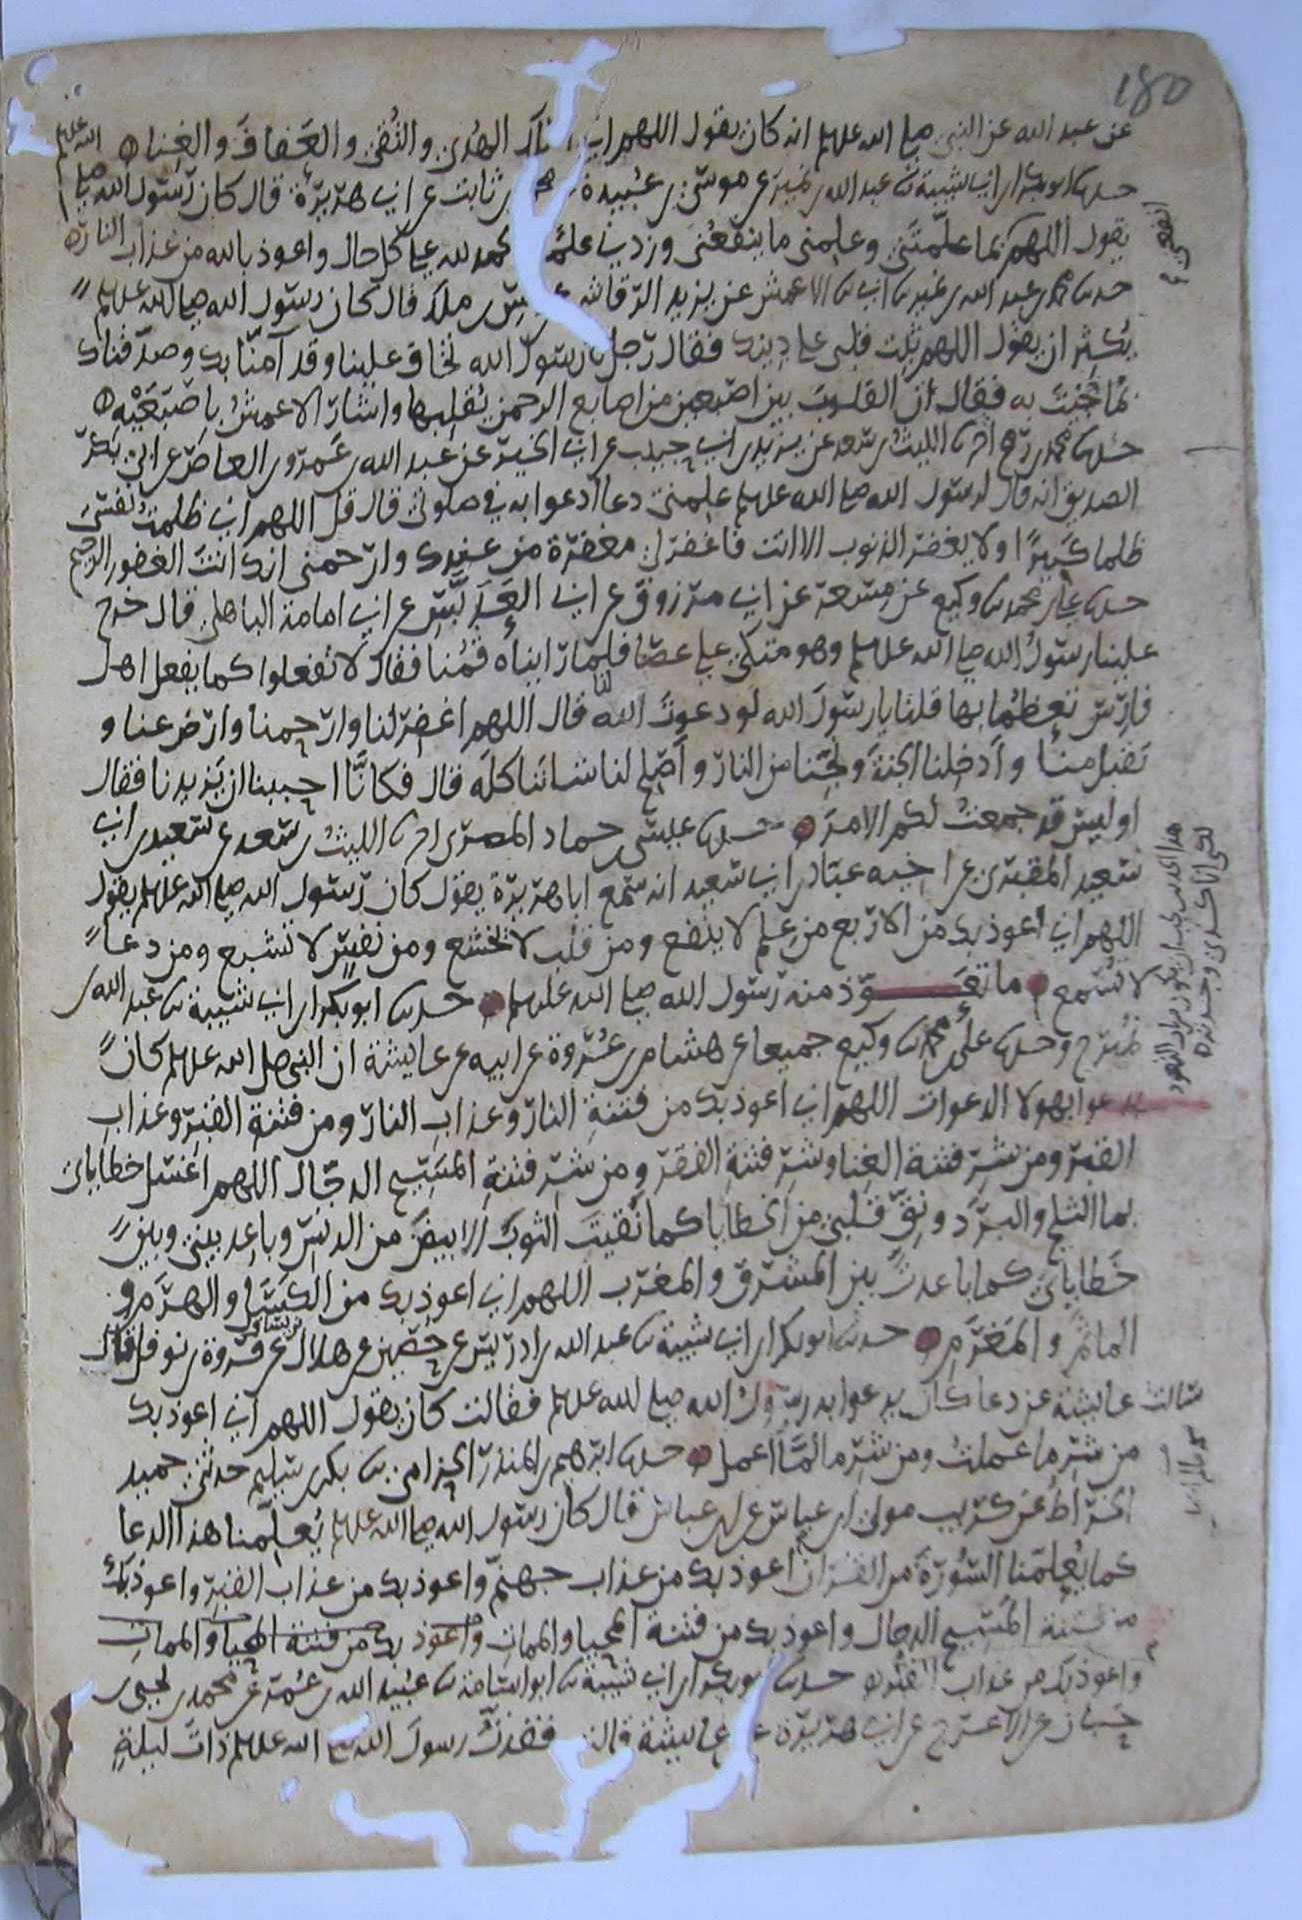 180
عن عبد الله عن النبي صلى الله علىىلم انه كان يقول اللهم اني اسالك الهُدى والتُقى والعَفافَ والغِنا
حدىا ابو بكر ابن ابي شيبة ىا عبد الله بن نمير عن موسى بن عُبيدة عن محمد بن ثابت عن ابي هريرة قال كان رسول الله صلى الله علىىلم
يقول اللهم انفعني بما علّمتَني وعلِمني ما ينفعُني وزدني علمًا والحمد لله على كل حال واعوذ بالله من عذاب النار
حدىا محمد بن عبد الله بن نمير ىا ابي ىا الاعمش عن يزيد الرقاشي عن انس بن ملك قال كان رسول الله صلى الله علىىلم
يُكثِر ان يقول اللهم ثَبِّت قلبي على دِينك فقال رجل يا رسول الله تخاف علينا وقد آمنّا بك وصدّقناك
بما جئتَ به فقال ان القلوبَ بين اصبعين من اصابع الرحمن يُقلبها واشار الاعمشُ باصبَعَيْه
حدىا محمد بن رمح اىا الليث بن سعد عن يزيد بن ابي حبيب عن ابي الخير عن عبد الله بن عَمرو بن العاص عن ابي بكر
الصديق انه قال لرسول الله صلى الله علىىلم علمني دعا ادعوا به في صلوتي قال قل اللهم اني ظلمت نفسي
ظلما كثيرًا ولا يغفر الذنوب الا انت فاغفر لي مغفرة من عندك وارحمني انك انت الغفور الرحيم
حدىا علي بن محمد ىا وكيع عن مِسعر عن ابي مرزوق عن ابي العَدَبَّس عن ابي امامة الباهلي قال خرج
علينا رسولُ الله صلى الله علىىلم وهو متكئ على عصًا فلما راَيناه قُمنا فقال لا تفعلوا كما يفعل اهل
فارِس بعظمُائها قلنا يا رسول الله لو دعوتَ الله لنا قال اللهم اغفر لنا وارحمنا وارض عنا و
تقبل منا وادخلنا الجنةَ ونَجِّنا من النار وأصلح لنا شاننا كلَه قال فكانّا احببنا ان يَزيدنا فقال
اوليس قد جمعتُ لكم الامرَ حدىا عيسى بن حماد المصرى اىا الليثُ بن سعد عن سعيد بن ابي
سعيد المقبري عن اخيه عبّاد بن ابي سَعيد انه سمع ابا هريرة يقول كان رسول الله صلى الله علىىلم يقول
اللهم اني اعوذ بك من الاربع من عِلم لا ينفع ومن قلب لا يخشع ومن نفس لا تشبع ومن دعا
لا يُسمع ما تَعَـــوّذ منه رَسول الله صلى الله علىىلم حدىا ابو بكر ابن ابي شيبة ىا عبد الله بن
نُمير ح وحدىا علي بن محمد ىا وكيع جميعا عن هشام بن عُروة عن ابيه عن عايشة ان النبي صلى الله علىىلم كان
يدعوا بهولا الدعوات اللهم اني اعوذ بك من فتنةِ النار وعذابِ النار ومن فتنة القبر وعذاب
القبر ومن شر فتنة الغِنا وشر فتنةِ الفقر ومن شر فتنةِ المَسِيح الدجّال اللهم اغسل خطاياي
بما الثلج والبرَد ونَقِّ قلبي من الخطايا كما نَقيتَ الثوبَ الابيضَ من الدنَس وباعِد بيني وبين
خَطاياي كما باعدتَ بين المشرق والمغرب اللهم اني اعوذ بك من الكَسَل والهَرَم و
الماثَمِ والمَغرَمِ حدىا ابو بكر ابن ابي شيبة ىا عبد الله بن ادريس عن حُصين عن هلال بن يساف عن فروة بن نوفل قال
سالت عايشة عن دعا كان يدعوا به رسول الله صلى الله علىىلم فقالت كان يقول اللهم اني اعوذ بك
من شرِ ما عملتُ ومن شرِ ما لم اعمل حدىا ابرهيم بن المنذر الحِزامي ىا بكر بن سليم حدثني حميد
الخراط عن كريب مولى ابن عباس عن ابن عباس قال كان رسول الله صلى الله علىىلم يُعلّمنا هذا الدعا
كما يُعلّمنا السُورَة من القران اعوذ بك من عذاب جهنّم واعوذ بك من عذاب القبر واعوذ بك
من فتنة المَسِيح الدجال واعوذ بك من فتنة المحيا والممات واعوذ بك من فتنة المحيا والممات
واعوذ بك من عذاب القبر حدىا ابو بكر ابن ابي شيبة ىا ابو اسامة ىا عُبيد الله بن عُمر عن محمد بن يحيى بن
حَبان عن الاعرج عن ابي هريرة عن عايشة قالت فقدتُ رسولَ الله صلى الله علىىلم ذاتَ ليلةٍ